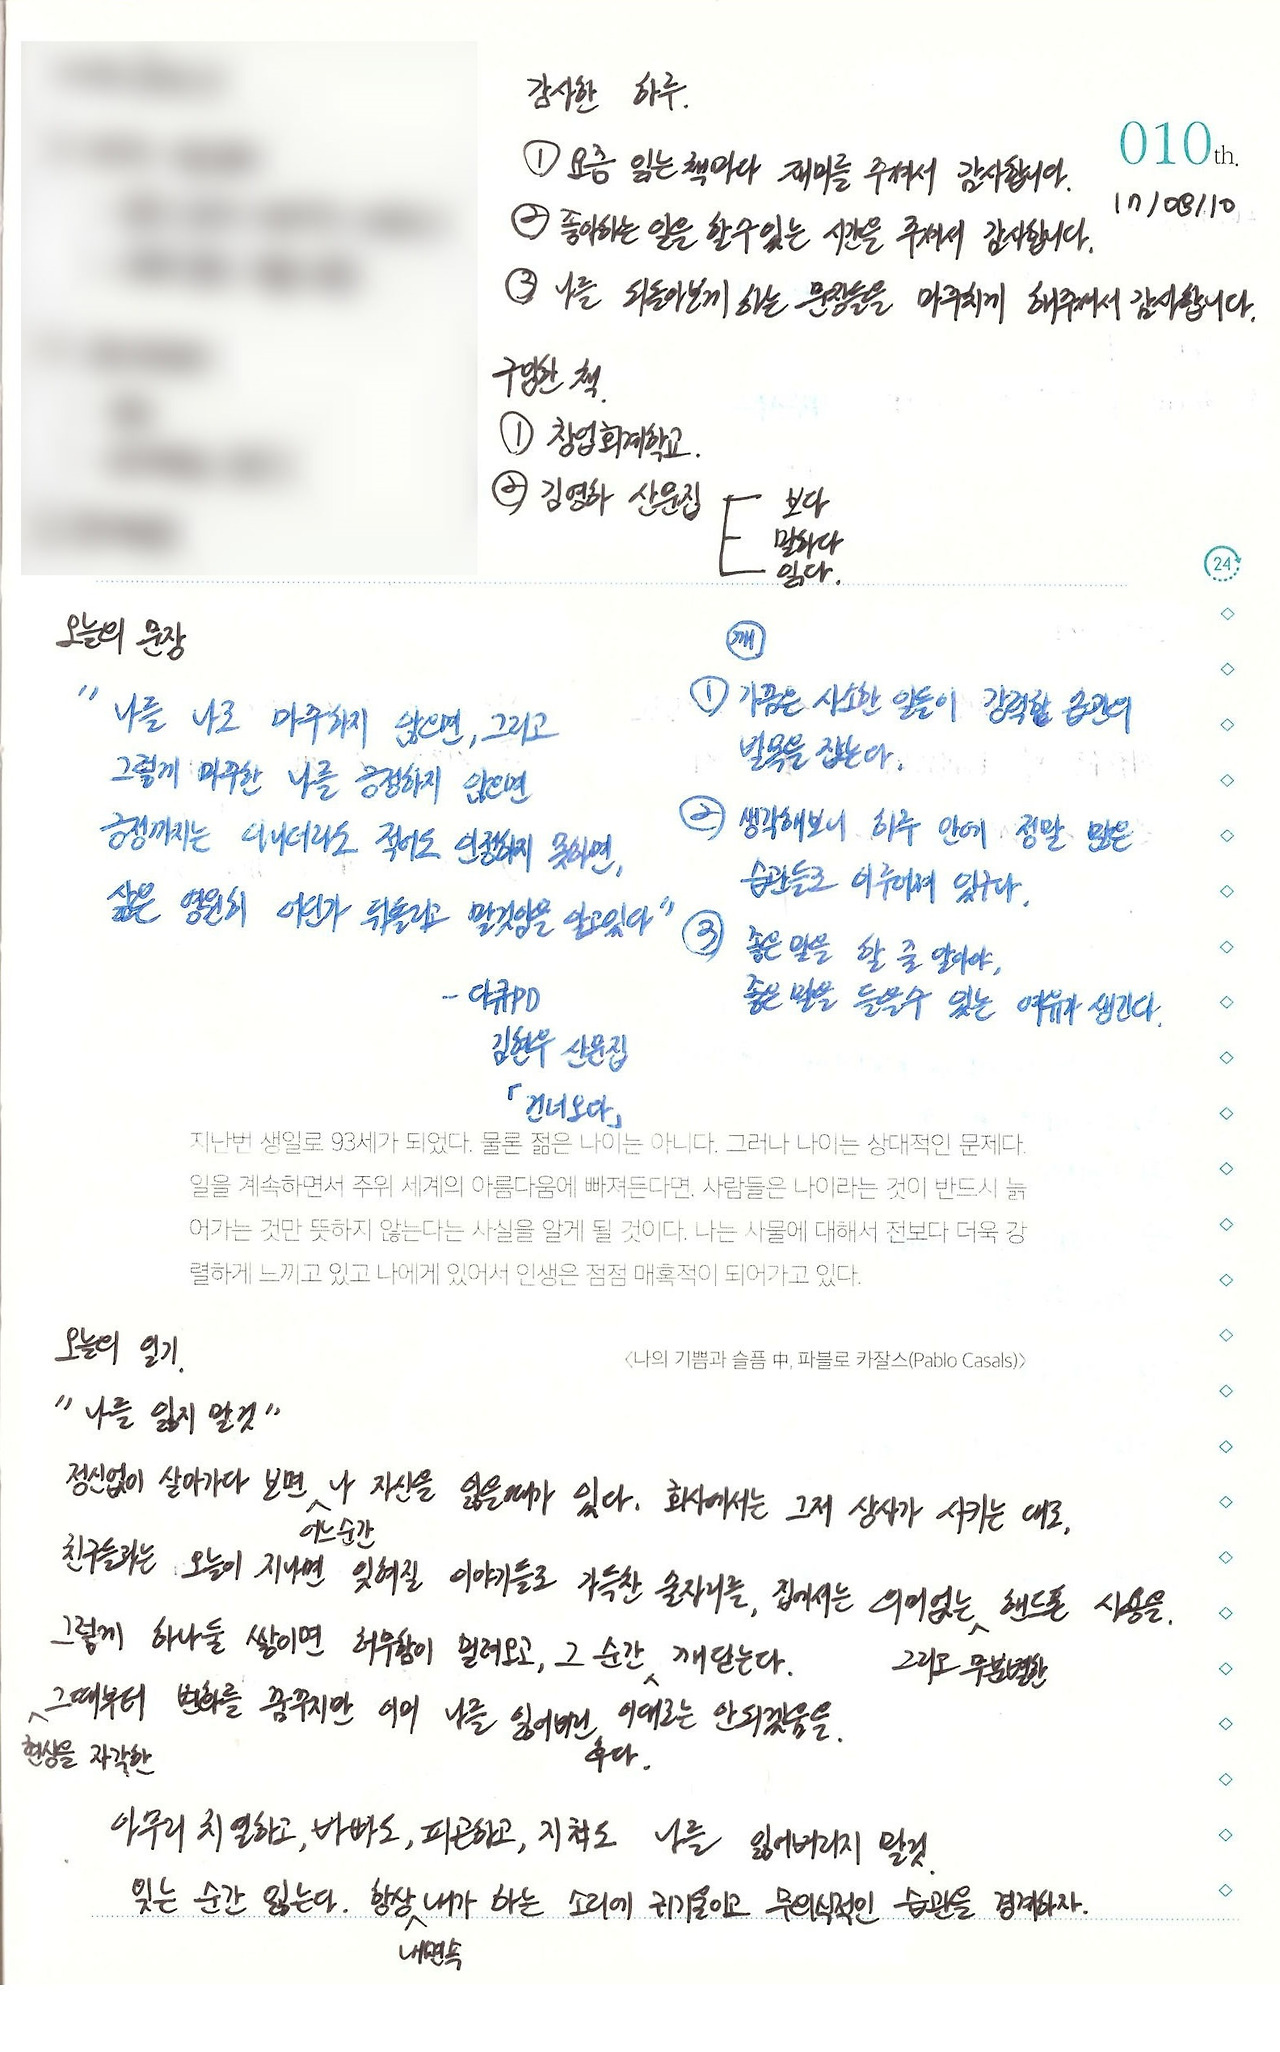 감사한 하루.
010th.
17/08/10
① 요즘 읽는 책마다 재미를 주셔서 감사합니다.
② 좋아하는 일을 할 수 있는 시간을 주셔서 감사합니다.
③ 나를 되돌아보게 하는 문장들을 마주치게 해주셔서 감사합니다.
구입한 책.
① 창업회계학교.
② 김영하 산문집
보다
말하다
읽다.
24
오늘의 문장
"나를 나로 마주하지 않으면, 그리고
그렇게 마주한 나를 긍정하지 않으면
긍정까지는 아니더라도 적어도 인정하지 못하면,
삶은 영원히 어딘가 뒤틀리고 말것임을 알고있다"
- 다큐PD
김현우 산문집
「건너오다」
깨
① 가끔은 사소한 일들이 강력한 습관의
발목을 잡는다.
② 생각해보니 하루 안에 정말 많은
습관들로 이루어져 있구나.
③ 좋은 말을 할 줄 알아야,
좋은 말을 들을수 있는 여유가 생긴다.
지난번 생일로 93세가 되었다. 물론 젊은 나이는 아니다. 그러나 나이는 상대적인 문제다.
일을 계속하면서 주위 세계의 아름다움에 빠져든다면, 사람들은 나이라는 것이 반드시 늙
어가는 것만 뜻하지 않는다는 사실을 알게 될 것이다. 나는 사물에 대해서 전보다 더욱 강
렬하게 느끼고 있고 나에게 있어서 인생은 점점 매혹적이 되어가고 있다.
<나의 기쁨과 슬픔 中, 파블로 카잘스(Pablo Casals)>
오늘의 일기.
"나를 잃지 말것"
정신없이 살아가다 보면 나 자신을 잃을때가 있다. 회사에서는 그저 상사가 시키는 대로,
어느순간
친구들과는 오늘이 지나면 잊혀질 이야기들로 가득찬 술자리를, 집에서는 의미없는 핸드폰 사용을.
그리고 무분별한
그렇게 하나둘 쌓이면 허무함이 밀려오고, 그 순간 깨닫는다.
그때부터 변화를 꿈꾸지만 이미 나를 잃어버린 이대로는 안되겠음을.
현상을 자각한
후다.
아무리 치열하고, 바빠도, 피곤하고, 지쳐도 나를 잃어버리지 말것.
잊는 순간 잃는다. 항상 내가 하는 소리에 귀기울이고 무의식적인 습관을 경계하자.
내면속